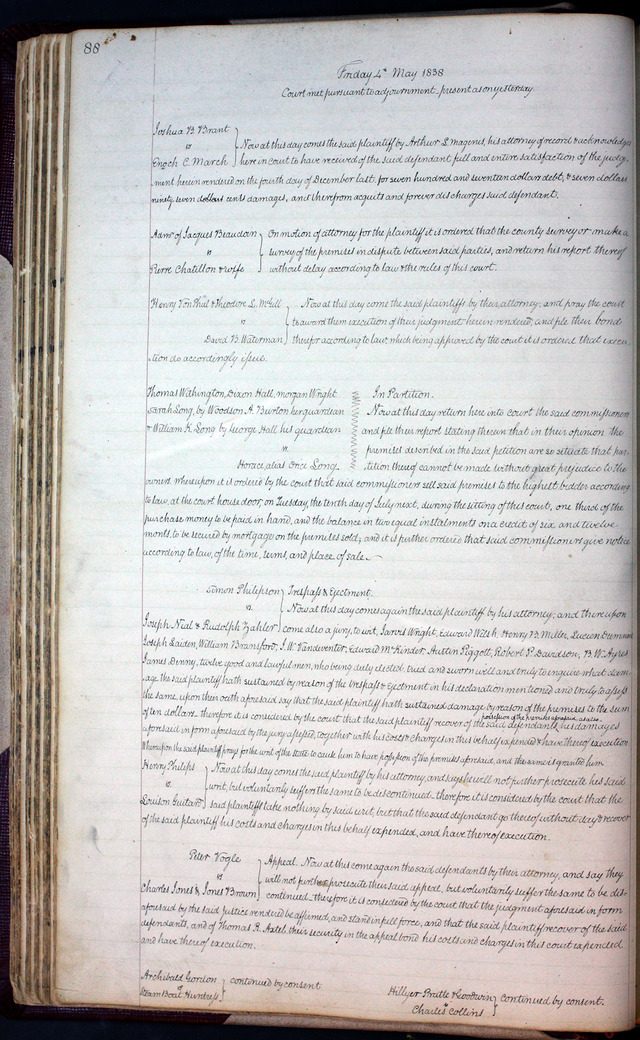 88
Friday 4th May 1838
Court met pursuant to adjournment, present as on yesterday.
Joshua B. Brant
vs
Enoch C. March
Now at this day comes the said plaintiff by Arthur L. Magenis, his attorney of record & acknowledges
here in court to have received of the said defendant full and entire satisfaction of the judg-
ment herein rendered on the fourth day of December last, for seven hundred and seventeen dollars debt, & seven dollars
ninety seven dollars cents damages, and therefrom acquits and forever discharges said defendant.
Admr of Jacques Beaudoin
vs
Pierre Chatillon & wife
On motion of attorney for the plaintiff it is ordered that the county surveyor make a
survey of the premises in dispute between said parties, and return his report thereof
without delay according to law & the rules of this court.
Henry Von Phul & Theodore L. McGill
vs
David B. Waterman
Now at this day come the said plaintiffs by their attorney, and pray the court
to award them execution of their judgment herein rendered, and file their bond
therefor according to law, which being approved by the court it is ordered that execu-
tion do accordingly issue.
Thomas Withington, Dixon Hall, Morgan Wright
Sarah Long, by Woodson A. Burton her guardian
& William R. Long by George Hall his guardian
vs.
Horace, alias Once Long.
In Partition.
Now at this day return here into court the said commissioners
and file their report stating therein that in their opinion the
premises described in the said petition are so situate that par-
tition thereof cannot be made without great prejudice to the
owners. whereupon it is ordered by the court that said commissioners sell said premises to the highest bidder according
to law, at the court house door, on Tuesday, the tenth day of July next, during the sitting of this court, one third of the
purchase money to be paid in hand, and the balance in two equal instalments on a credit of six and twelve
months, to be secured by mortgage on the premises sold; and it is further ordered that said commissioners give notice
according to law, of the time, terms, and place of sale.
Simon Philipson
vs.
Joseph Nial & Rudolph Zahler
Trespass & Ejectment.
Now at this day comes again the said plaintiff by his attorney, and thereupon
come also a jury, to wit, Jarvis Wright, Edward Welsh, Henry B. Miller, Lucien
Joseph Laiden, William Bransford, J. W. Vandeventer, Edward McKinder, Austin Piggott, Robert P. Davidson, B. W. Ayres
James Denny, twelve good and lawful men, who being duly elected, tried and sworn well and truly to enquire what dam-
age the said plaintiff hath sustained by reason of the trespass & Ejectment in his declaration mentioned and truly to assess
the same, upon their oath aforesaid say that the said plaintiff hath sustained damage by reason of the premises to the sum
of ten dollars. therefore it is considered by the court that the said plaintiff recover of the said defendants possession of the premises aforesaid as also his damages
aforesaid in form aforesaid by the jury assessed, together with his costs & charges in this behalf expended & have thereof execution
Whereupon the said plaintiff prays for the writ of the state to cause him to have possession of the premises aforesaid, and the same is granted him
Henry Philips
vs.
Louison Guitard
Now at this day comes the said plaintiff by his attorney and says he will not further prosecute his said
writ, but voluntarily suffers the same to be discontinued. therefore it is considered by the court that the
said plaintiff take nothing by said writ, but that the said defendant go thereof without day & recover
of the said plaintiff his costs and charges in this behalf expended, and have thereof execution.
Peter Vogle
vs
Charles Jones & Jones & Brown
Appeal. Now at this come again the said defendants by their attorney, and say they
will not further prosecute their said appeal, but voluntarily suffer the same to be dis-
continued. therefore it is considered by the court that the judgment aforesaid in form
aforesaid by the said Justice rendered be affirmed, and stand in full force, and that the said plaintiff recover of the said
defendants, and of Thomas R. Axtel their security in the appeal bond his costs and charges in this court expended
and have thereof execution.
Archibald Gordon
vs
Steam Boat Huntress
continued by consent
Hillyer Pratte & Goodwin
vs
Charles Collins
continued by consent.